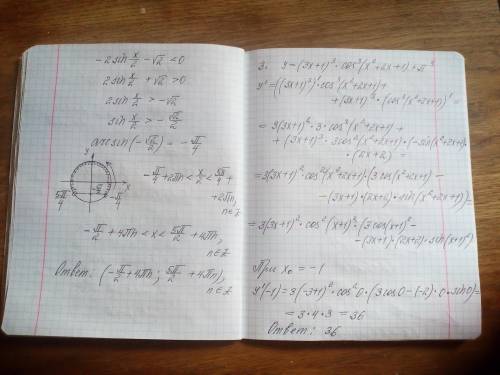 -2sin x/2 - √2 < 0
2sin x/2 + √2 > 0
2sin x/2 > -√2
sin x/2 > -√2/2
arcsin(-√2/2) = -π/4
y
x
5π/4
-π/4
-π/4 + 2πn < x/2 < 5π/4 +
+ 2πn,
n∈Z
-π/2 + 4πn < x < 5π/2 + 4πn,
n∈Z
Ответ: (-π/2 + 4πn; 5π/2 + 4πn),
n∈Z
3. y = (3x+1)³·cos³(x²+2x+1)+π³
y' = ((3x+1)³)'·cos³(x²+2x+1)+
+ (3x+1)³·(cos³(x²+2x+1))' =
= 3(3x+1)²·3·cos³(x²+2x+1)+
+ (3x+1)³·3cos²(x²+2x+1)·(-sin(x²+2x+1))·
·(2x+2) =
= 3(3x+1)²·cos²(x²+2x+1)·(3cos(x²+2x+1)-
-(3x+1)·(2x+2)·sin(x²+2x+1)) =
= 3(3x+1)²·cos²(x+1)²·(3cos(x+1)²-
-(3x+1)·(2x+2)·sin(x+1)²)
При x₀ = -1
y'(-1) = 3(-3+1)²·cos²0·(3cos0-(-2)·0·sin0) =
= 3·4·3 = 36
Ответ: 36